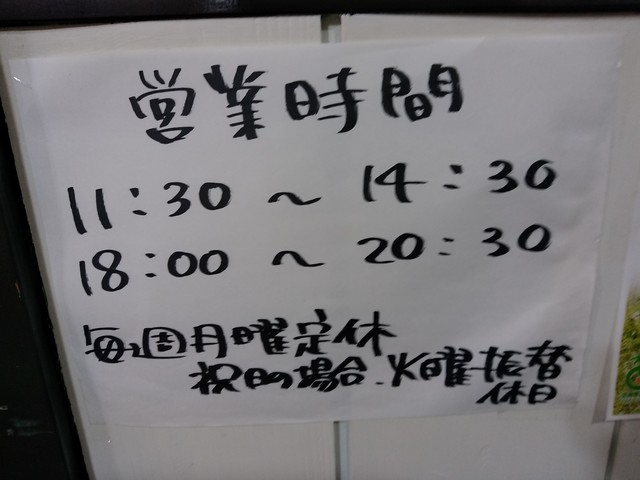 営業時間
11:30 ～ 14:30
18:00 ～ 20:30
毎週月曜定休
祝日の場合.火曜振替
休日